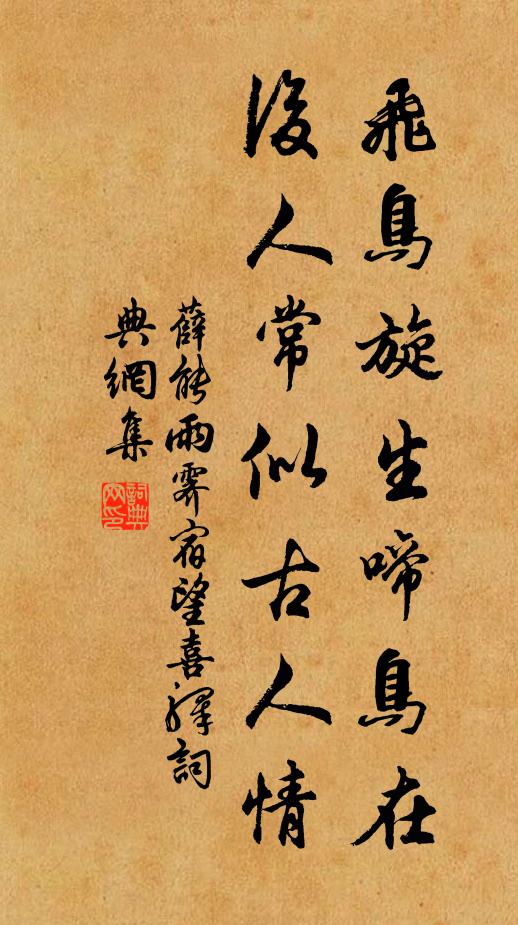 飛鳥旋生啼鳥在
後人常似古人情
薛能雨霽宿望喜驛詞
典網集
詞典
網印